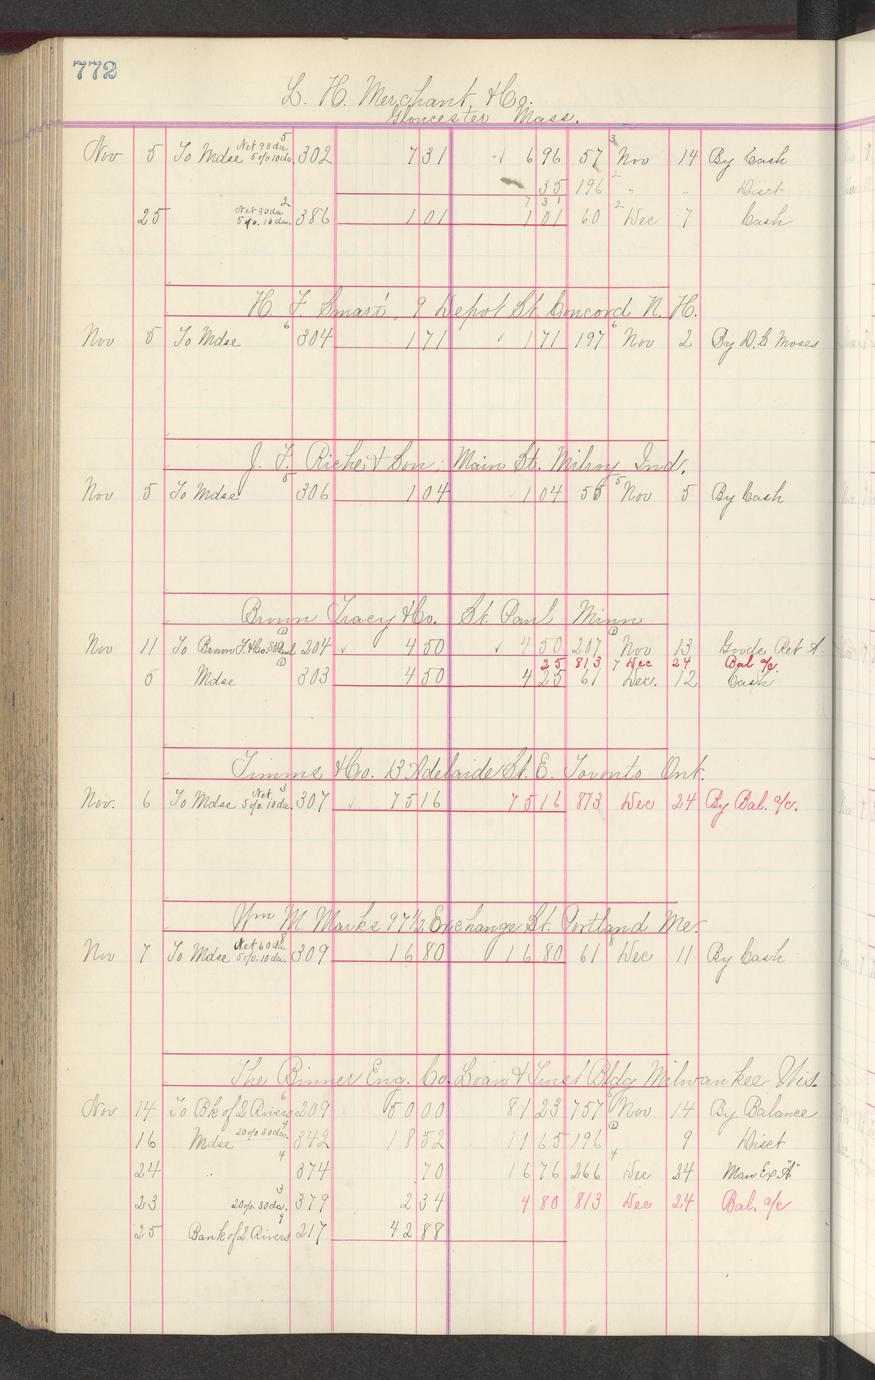 772
L. H. Merchant & Co.
Gloucester Mass.
Nov 5 To Mdse Net 90 da 5% 10 da. 5 302 7 31 √ 6 96 57 3 Nov 14 By Cash
35 196 2 " " Disct
7 31
25 Net 90 da 5% 10 da. 2 386 1 01 1 01 60 2 Dec 7 Cash
H. F. Smart, 9 Depot St. Concord N. H.
Nov 5 To Mdse 6 304 1 71 1 71 197 6 Nov 2 By D. G. Moses
J. F. Riche & Son, Main St. Milroy Ind.
Nov 5 To Mdse 5 306 1 04 1 04 55 5 Nov 5 By Cash
Brown Tracy & Co. St. Paul Minn
Nov 11 To Brown T. & Co. St Paul 1 204 √ 4 50 √ 4 50 207 1 Nov 13 Goods Ret A
25 813 7 Dec 24 Bal a/c.
5 Mdse 1 303 4 50 4 25 61 Dec. 12 Cash
Timms & Co. 13 Adelaide St. E. Toronto Ont.
Nov. 6 To Mdse Net 5% 10 da. 3 307 √ 75 16 75 16 813 Dec 24 By Bal. a/c.
Wm M. Marks 97 1/2 Exchange St. Portland Me.
Nov 7 To Mdse Net 60 da 5% 10 da. 8 309 16 80 16 80 61 8 Dec 11 By Cash
The Binner Eng. Co. Loan & Trust Bldg Milwaukee Wis.
Nov 14 To Bk of 2 Rivers 6 209 50 00 81 23 757 6 Nov 14 By Balance
16 Mdse 20% 30 da. 4 342 18 52 11 65 196 1 9 Disct
24 " 4 374 70 16 76 266 4 Dec 24 Man Ex "A"
23 20% 30 da. 3 379 2 34 4 80 813 Dec 24 Bal. a/c
25 Bank of 2 Rivers 9 217 42 88